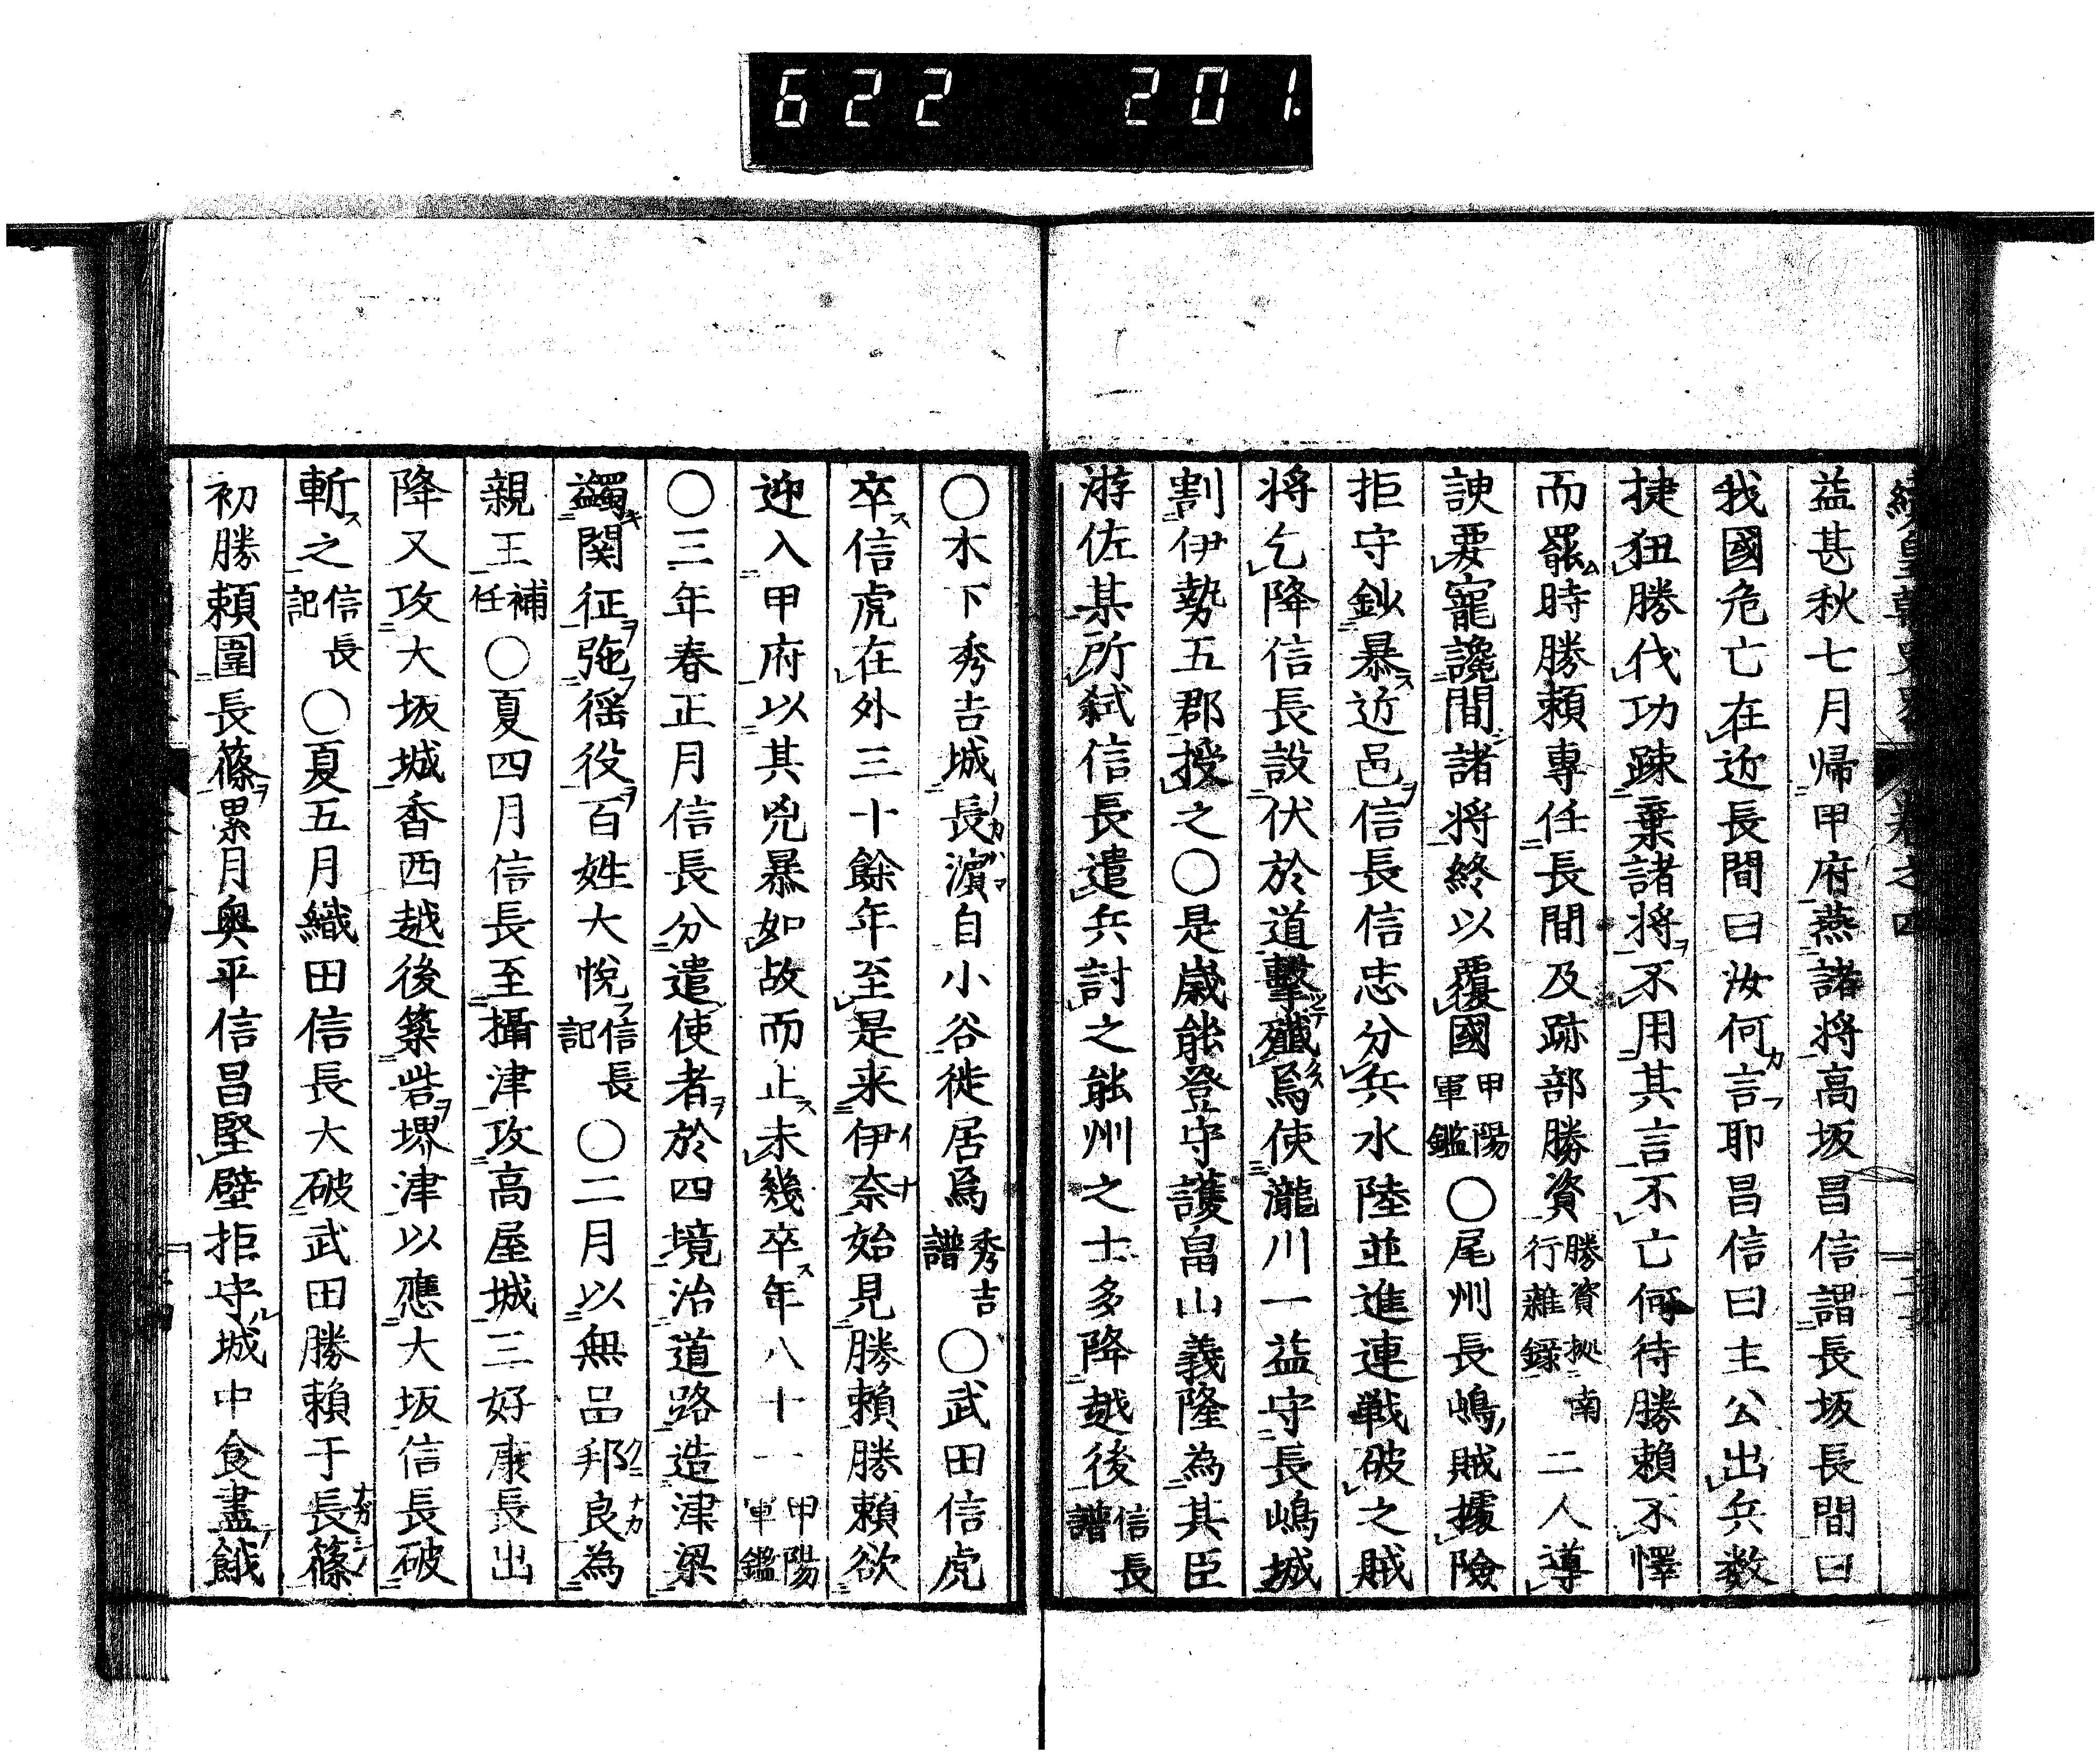 622 201.
益甚秋七月帰甲府燕諸将高坂昌信謂長坂長間曰
我國危亡在近長間曰汝何言耶昌信曰主公出兵数
捷狃勝伐功疎棄諸将不用其言不亡何待勝頼不懌
而罷時勝頼専任長間及跡部勝資勝資拠南行雜録二人導
諛要寵讒間諸将終以覆國甲陽軍鑑〇尾州長嶋賊據險
拒守鈔暴近邑信長信忠分兵水陸並進連戦破之賊
将乞降信長設伏於道擊殲焉使瀧川一益守長嶋城
割伊勢五郡授之〇是歳能登守護畠山義隆為其臣
游佐某所弑信長遣兵討之能州之士多降越後信長譜
〇木下秀吉城長濵自小谷徙居焉秀吉譜〇武田信虎
卒信虎在外三十餘年至是来伊奈始見勝頼勝頼欲
迎入甲府以其兇暴如故而止未幾卒年八十一甲陽軍鑑
〇三年春正月信長分遣使者於四境治道路造津梁
蠲関征弛徭役百姓大悅信長記〇二月以無品邦良為
親王補任〇夏四月信長至攝津攻高屋城三好康長出
降又攻大坂城香西越後築砦堺津以應大坂信長破
斬之信長記〇夏五月織田信長大破武田勝頼于長篠
初勝頼圍長篠累月奥平信昌堅壁拒守城中食盡餓